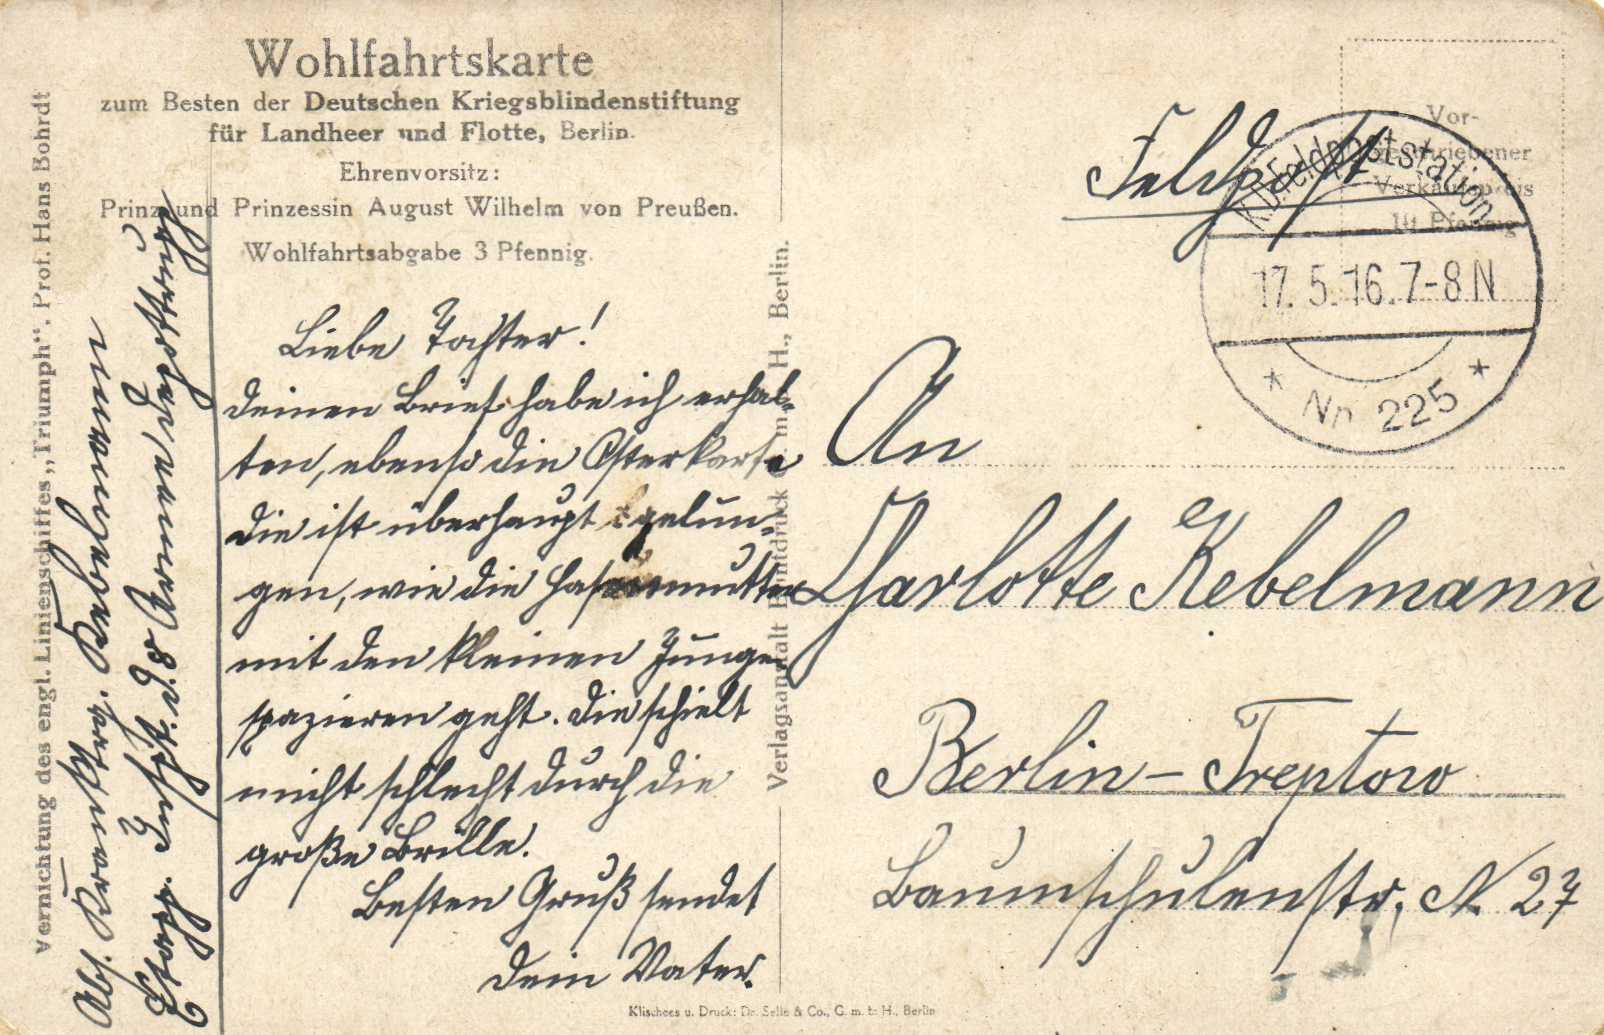 Wohlfahrtskarte
zum Besten der Deutschen Kriegsblindenstiftung
für Landheer und Flotte, Berlin.
Ehrenvorsitz:
Prinz und Prinzessin August Wilhelm von Preußen.
Wohlfahrtsabgabe 3 Pfennig.
Liebe Tochter!
Deinen Brief habe ich erhal-
ten, ebenso die Osterkarte
die ist überhaupt gelun-
gen, wie die Hasenmutter
mit den kleinen Jungen
spazieren geht. Die schielt
nicht schlecht durch die
große Brille.
Besten Gruß sendet
Dein Vater.
Abs.
Etapp. Insp. d. 8 Armee, Feldpoststation
Vernichtung des engl. Linienschiffes „Triumph“. Prof. Hans Bohrdt
Verlagsanstalt Buntdruck G. m. b. H., Berlin.
Feldpost
Vor-
geschriebener
Verkaufspreis
10 Pfennig
K.D. Feldpoststation
17.5.16.7-8N
* Nr. 225 *
An
Charlotte Kebelmann
Berlin – Treptow
Baumschulenstr. N. 27
Klischees u. Druck: Dr. Selle & Co., G. m. b. H., Berlin